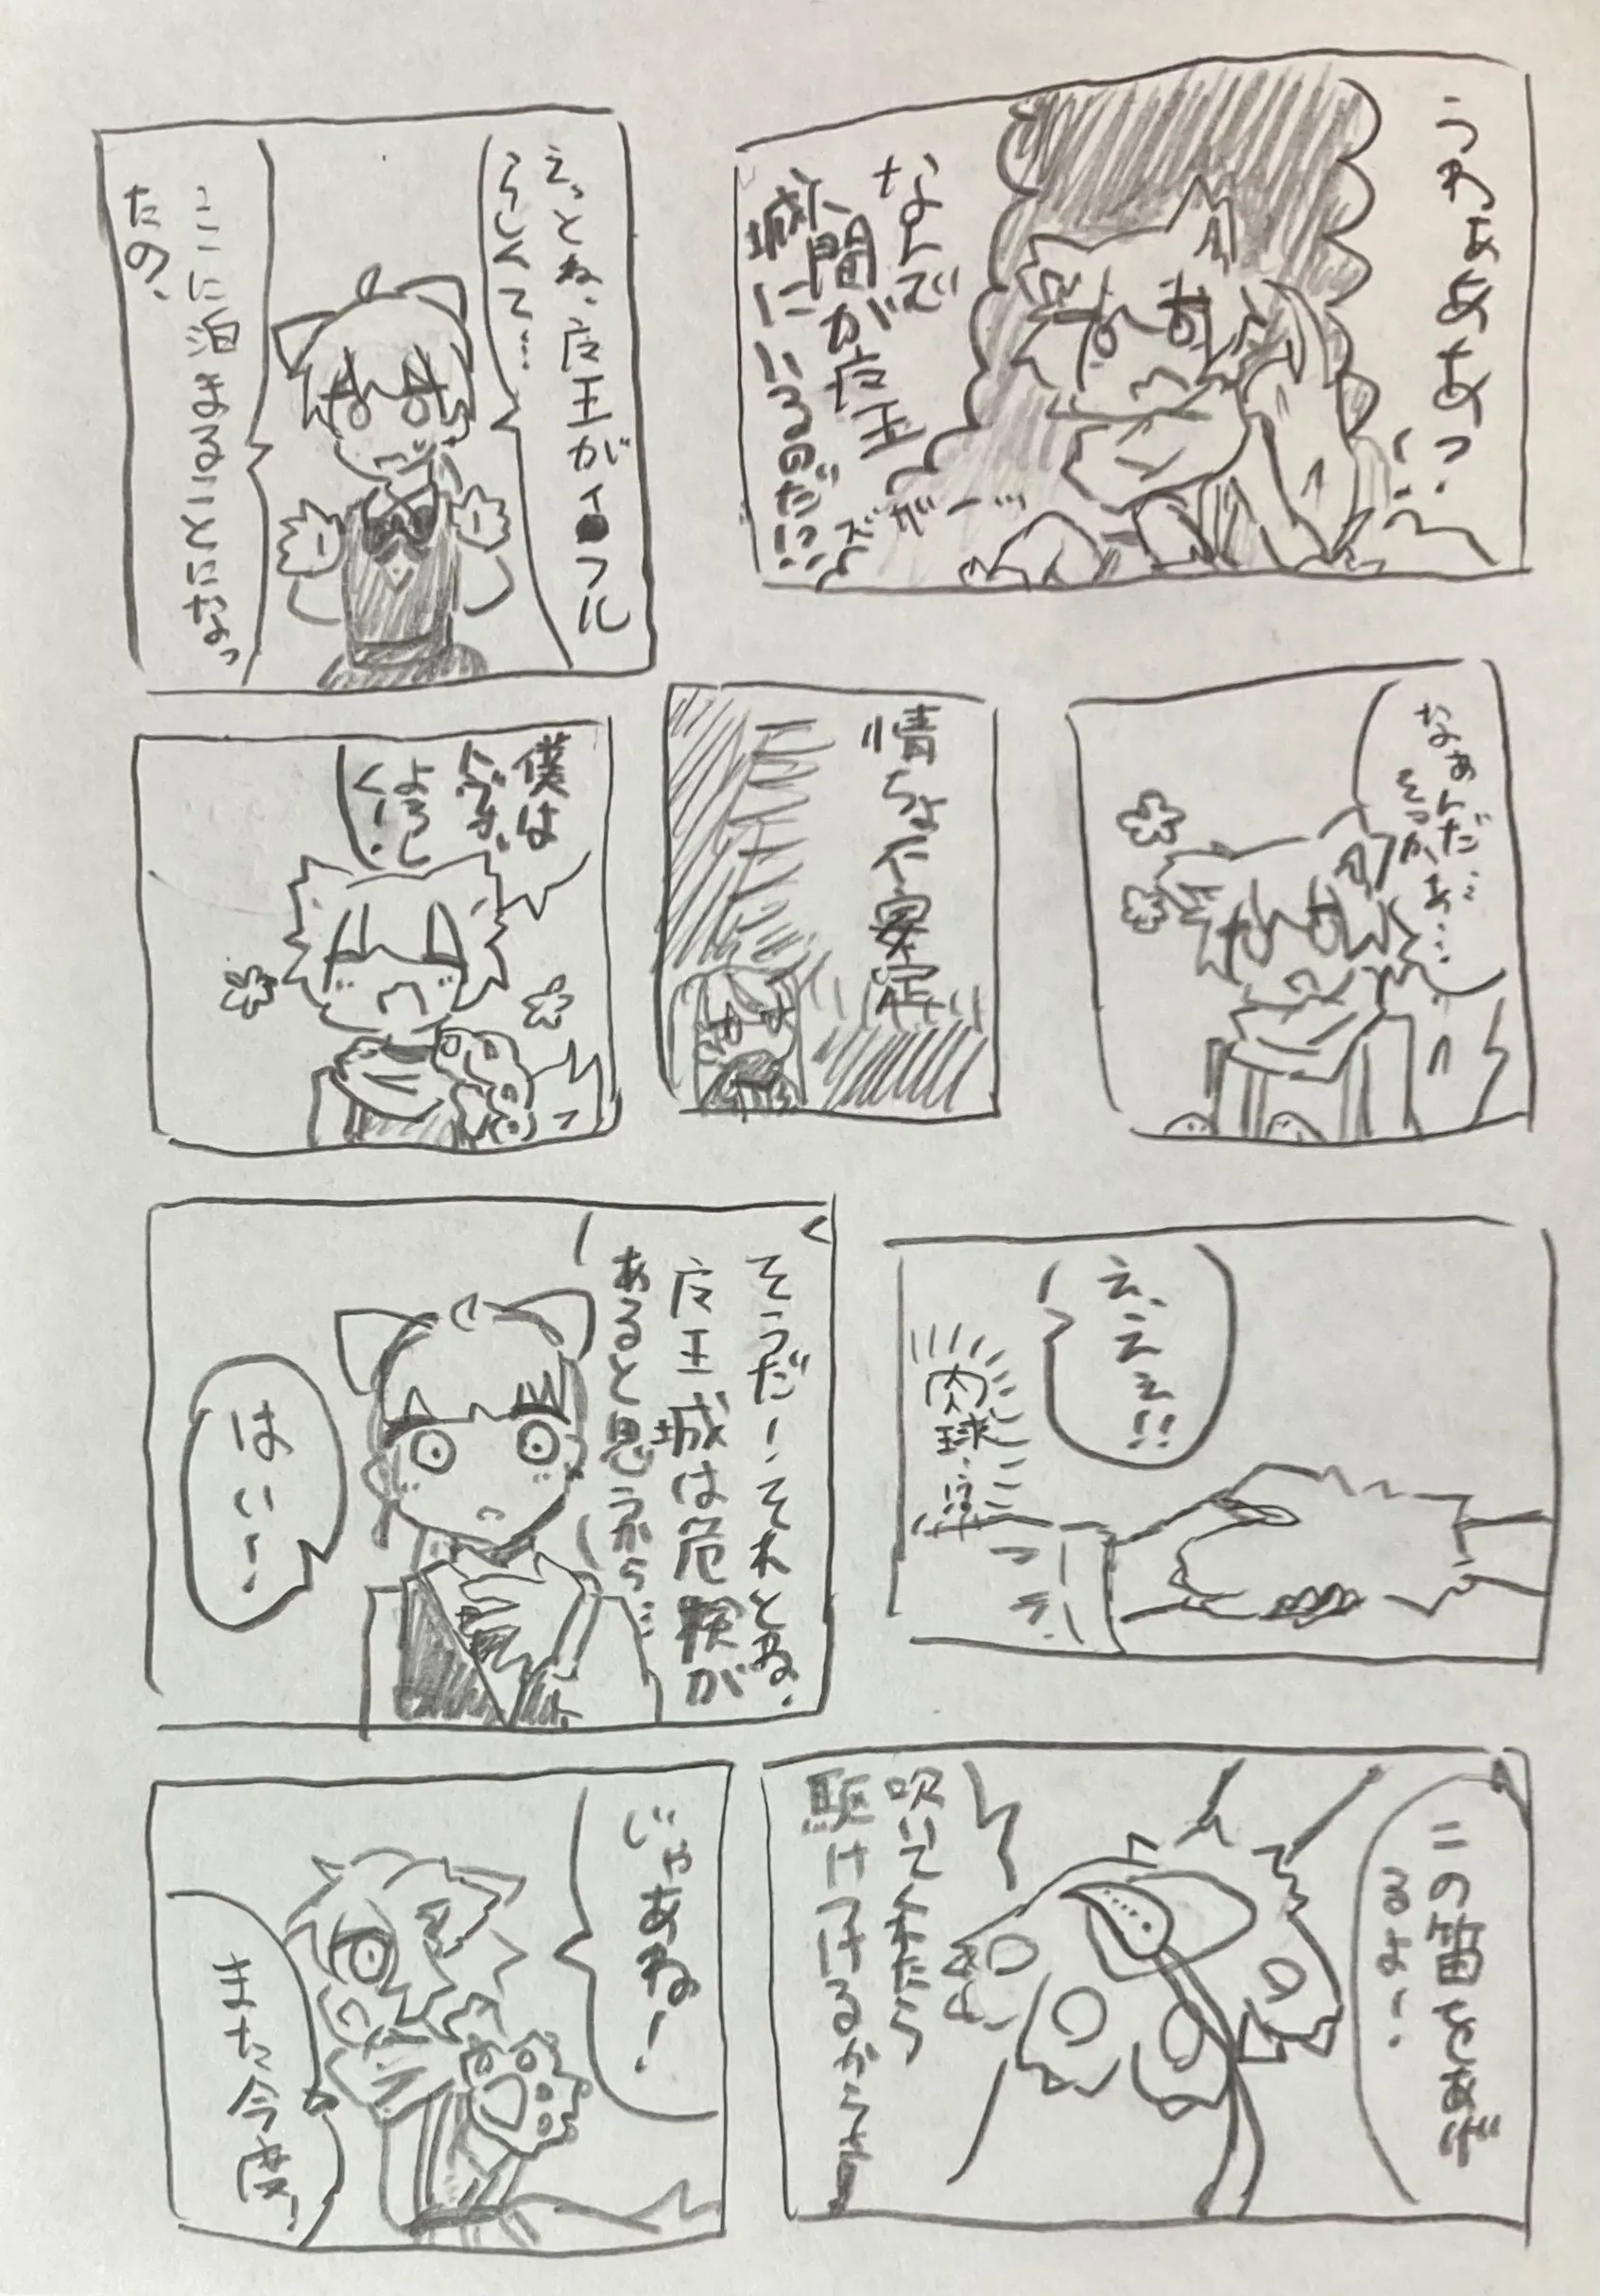 うわぁああっ
なんで
人間が庄王
城にいるのだ!?
ズザー…
えっとね、庄王がイ●フル
らしくて…
ここに泊まることになっ
たの、
なぁんだ…
そっかぁ…
情ちょ不安定
僕は
よろし
く!
え、えぇ!!
肉球…
そうだ!それとね、
庄王城は危険が
あると思うから…
はい!
この笛をあげ
るよ!
吹いてくれたら
駆けつけるからよ
じゃあね!
また今度、